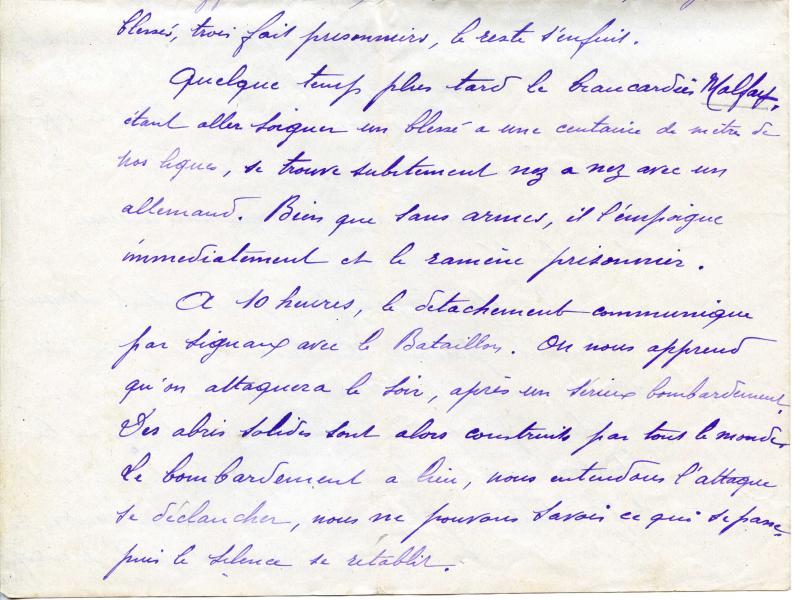 blessés, trois fait prisonniers, le reste s'enfuit.
Quelque temps plus tard le brancardier Malfay,
étant aller soigner un blessé a une centaine de mètre de
nos lignes, se trouve subitement nez a nez avec un
allemand. Bien que sans armes, il l'empoigne
immediatement et le ramène prisonnier.
A 10 heures, le détachement communique
par signaux avec le Bataillon. On nous apprend
qu'on attaquera le soir, après un sérieux bombardement.
Des abris solides sont alors construits par tout le monde.
Le bombardement a lieu, nous entendons l'attaque
se déclancher, nous ne pouvons savoir ce qui se passe,
puis le silence se rétablit.